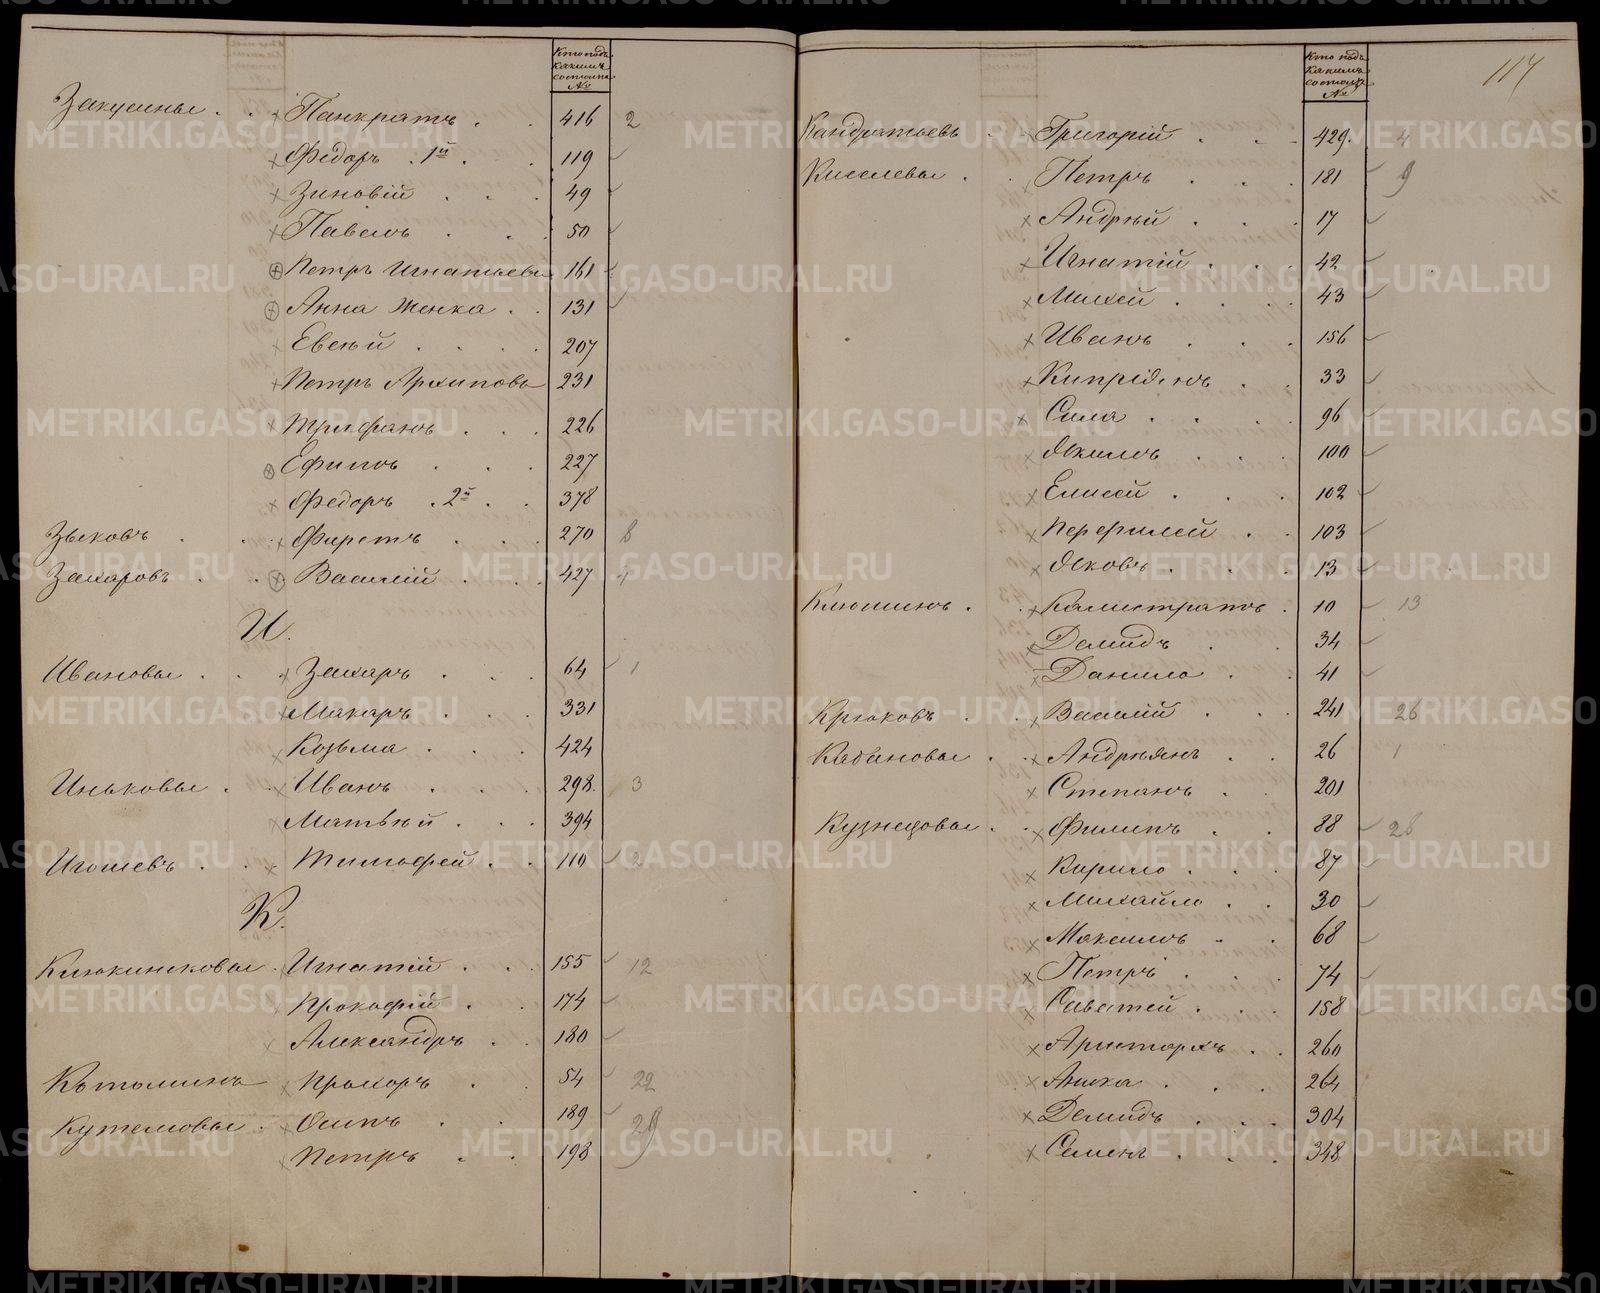 Кто подъ
какимъ
состоитъ
№
Закусины . . Панкратъ . . 416 2
Федоръ . 1й . . 119
Зиновій . . . 49
Павелъ . . . 50
Петръ Игнатьевъ 161
Анна Женка . . 131
Евсѣй . . . . 207
Петръ Архиповъ 231
Трифанъ . . . 226
Ефимъ . . . 227
Федоръ . 2й . . 378
Зыковъ . . . Фиретъ . . . 270 8
Захаровъ . . . Василій . . . 427 4
И.
Ивановы . . . Захаръ . . . 64 1
Макаръ . . . 331
Козьма . . . 424
Иньковы . . Иванъ . . . 298. 3
Матвѣй . . . 394
Игошевъ . . . Тимофей . . 110 2
К.
Клюкинсковы . Игнатій . . . 155 12
Прокофій . . 174
Александръ . . 180
Прохоръ . . 54 22
Кутемовы . Осипъ . . 189 29
Петръ . . 198
117
Кто подъ
какимъ
состоитъ
№
Кандратьевъ . . Григорій . . . 429. 4
Киселевы . . Петръ . . . 181 9
Андрѣй . . . 17
Игнатій . . . 42
Михей . . . . 43
Иванъ . . . 156
Кипріянъ . . 33
Сила . . . . 96
Якимъ . . . 100
Елисей . . . 102
Перфилей . . 103
Яковъ . . . . 13
Клюшинъ . . Калистратъ . 10 13
Демидъ . . 34
Данило . . 41
Крюковъ . . Василій . . . 241 26
Кабановы . . Андреянъ . . 26 1
Степанъ . . 201
Кузнецовы . . Филипъ . . 88 28
Кирило . . . 87
Михайло . . 30
Максимъ . . 68
Петръ . . . 74
Саватей . . . 158
Аристархъ . . 260
Аника . . . 264
Демидъ . . . 304
Семенъ . . . 348
METRIKI.GASO-URAL.RU